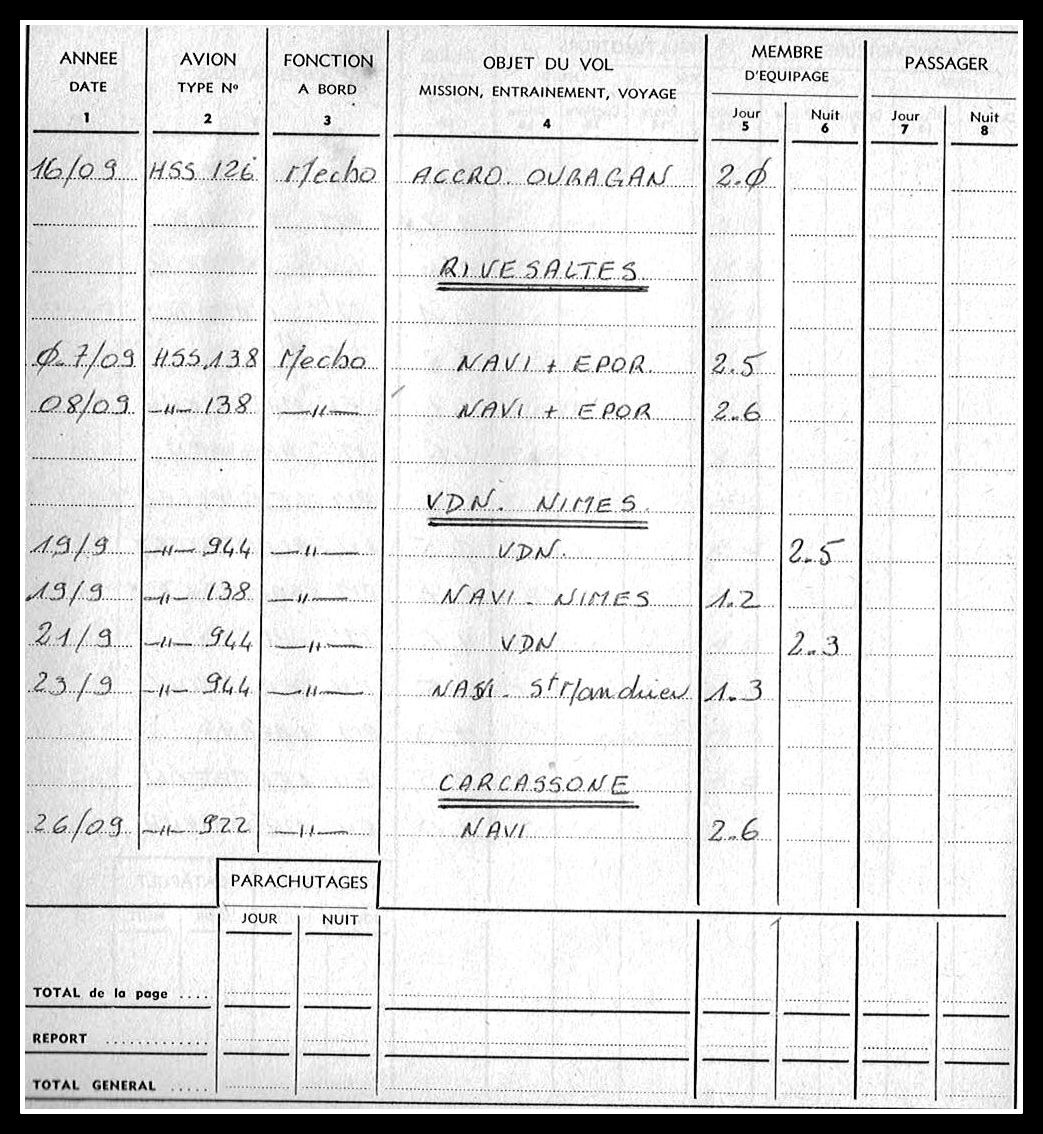 ANNEE AVION FONCTION OBJET DU VOL MEMBRE PASSAGER
DATE TYPE No A BORD MISSION, ENTRAINEMENT, VOYAGE D'EQUIPAGE
1 2 3 4 Jour 5 Nuit 6 Jour 7 Nuit 8
16/09 HSS 126 Mecbo ACCRO. OURAGAN 2.Ø
RIVESALTES
Ø7/09 HSS.138 Mecbo NAVI + EPOR 2.5
08/09 —"— 138 —"— NAVI + EPOR 2.6
VDN. NIMES.
19/9 —"— 944 —"— VDN. 2.5
19/9 —"— 138 —"— NAVI - NIMES 1.2
21/9 —"— 944 —"— VDN 2.3
23/9 —"— 944 —"— NAVI - St Mandrier 1.3
CARCASSONE
26/09 —"— 922 —"— NAVI 2.6
PARACHUTAGES
JOUR NUIT
TOTAL de la page ....
REPORT ............
TOTAL GENERAL .....